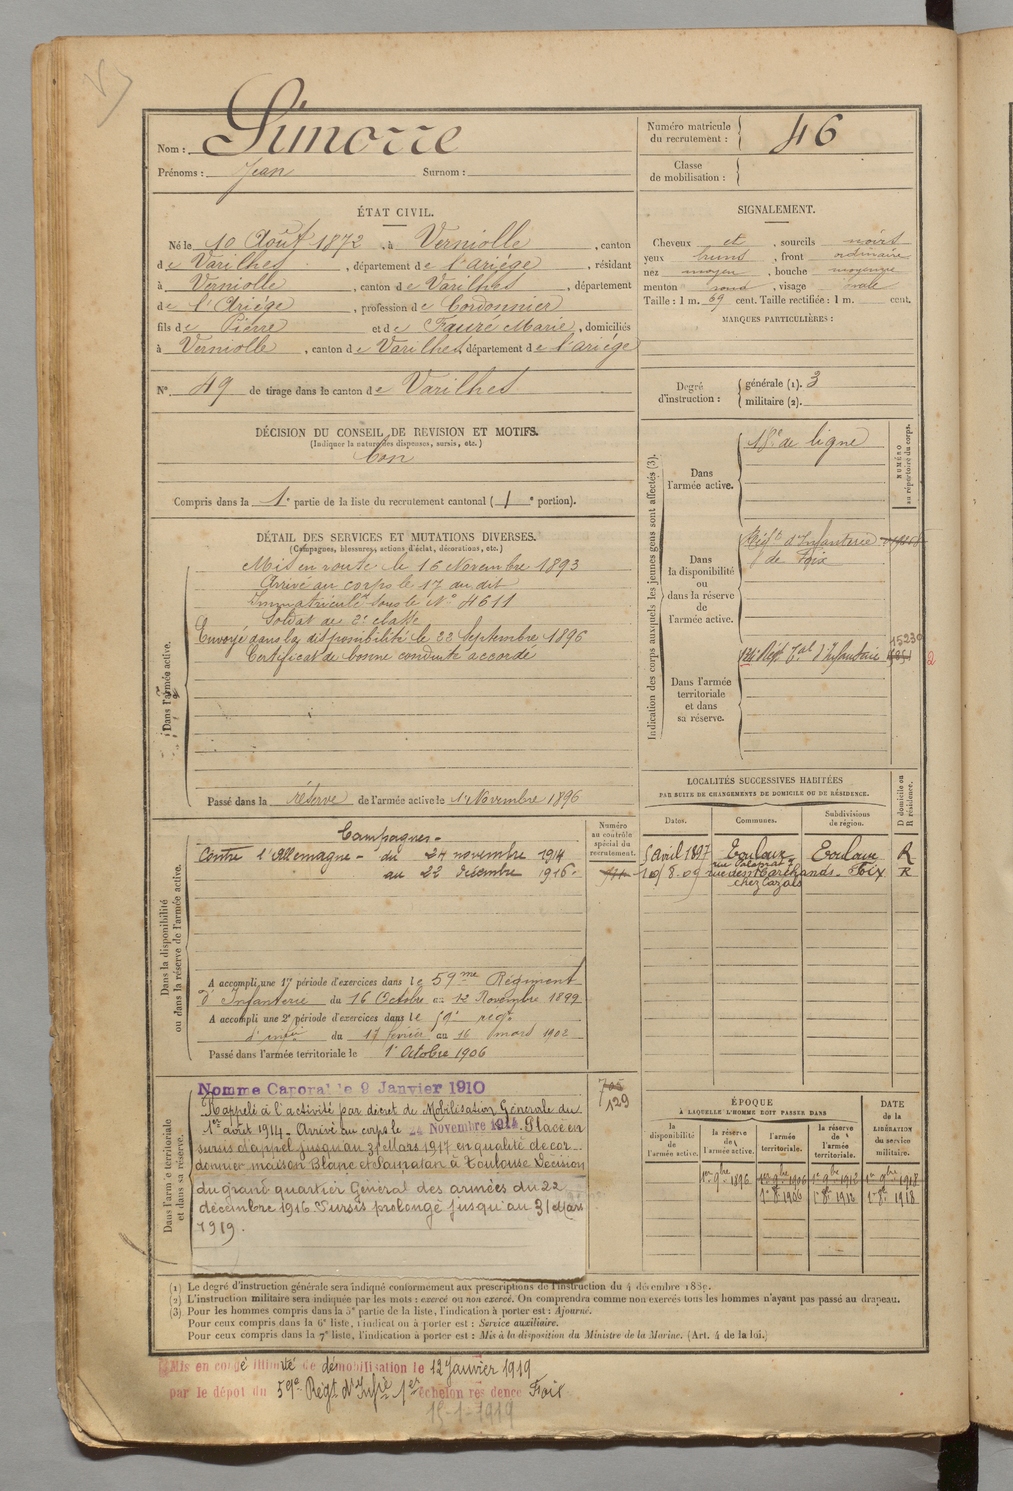 Nom : Simorre
Prénoms : Jean Surnom :
Numéro matricule du recrutement : 46
Classe de mobilisation :
ÉTAT CIVIL.
Né le 10 Août 1872, à Verniolle, canton
de Varilhes, département de l'Ariége, résidant
à Verniolle, canton de Varilhes, département
de l'Ariége, profession de Cordonnier
fils de Pierre et de Fauré Marie, domiciliés
à Verniolle, canton de Varilhes, département de l'ariége
N° 49 de tirage dans le canton de Varilhes
SIGNALEMENT.
Cheveux et, sourcils noirs
yeux bruns, front ordinaire
nez moyen, bouche moyenne
menton rond, visage ovale
Taille : 1 m. 69 cent. Taille rectifiée : 1 m. cent.
MARQUES PARTICULIÈRES :
Degré d'instruction : générale (1). 3
militaire (2).
DÉCISION DU CONSEIL DE REVISION ET MOTIFS.
(Indiquer la nature des dispenses, sursis, etc.)
bon
Compris dans la 1e partie de la liste du recrutement cantonal (1e portion).
DÉTAIL DES SERVICES ET MUTATIONS DIVERSES.
(Campagnes, blessures, actions d'éclat, décorations, etc.)
Dans l'armée active.
Mis en route le 16 Novembre 1893
Arrivé au corps le 17 au dit
Immatriculé sous le N° 4611
Soldat de 2e classe
Envoyé dans la disponibilité le 22 Septembre 1896
Certificat de bonne conduite accordé
Passé dans la réserve de l'armée active le 1r Novembre 1896
Indication des corps auxquels les jeunes gens sont affectés (3).
NUMÉRO au répertoire du corps.
Dans l'armée active.
18e de ligne
Dans la disponibilité ou dans la réserve de l'armée active.
Régt d'Infanterie
de Foix
Dans l'armée territoriale et dans sa réserve.
Régt Tal d'Infanterie
15230
2
LOCALITÉS SUCCESSIVES HABITÉES
PAR SUITE DE CHANGEMENTS DE DOMICILE OU DE RÉSIDENCE.
Dates. Communes. Subdivisions de région. D domicile ou R résidence.
5 Avril 1897 Toulouse Toulouse R
10/8-09 rue des Marchands Foix R
chez Cazals
Dans la disponibilité ou dans la réserve de l'armée active.
Numéro au contrôle spécial du recrutement.
Campagnes-
Contre l'Allemagne - du 24 novembre 1914
au 22 décembre 1916.
A accompli une 1re période d'exercices dans le 59me Régiment
d'Infanterie du 16 Octobre au 12 Novembre 1899
A accompli une 2e période d'exercices dans le 59e regt
d'infie du 17 février au 16 mars 1902
Passé dans l'armée territoriale le 1r Octobre 1906
Dans l'armée territoriale et dans sa réserve.
Nommé Caporal le 9 Janvier 1910
Rappelé à l'activité par décret de Mobilisation Générale du
1er août 1914. Arrivé au corps le 24 Novembre 1914. Placé en
sursis d'appel jusqu'au 31 Mars 1917 en qualité de cor-
donnier maison Blanc et à Toulouse Décision
du grand quartier Général des armées du 22
décembre 1916. Sursis prolongé jusqu'au 31 Mars
1919.
129
ÉPOQUE
À LAQUELLE L'HOMME DOIT PASSER DANS
DATE de la LIBÉRATION du service militaire.
la disponibilité de l'armée active. la réserve de l'armée active. l'armée territoriale. la réserve de l'armée territoriale.
1er 9bre 1896 1er 9bre 1906 1er 9bre 1912 1er 9bre 1918
1r 8bre 1906 1r 8bre 1912 1r 8bre 1918
(1) Le degré d'instruction générale sera indiqué conformément aux prescriptions de l'instruction du 4 décembre 1889.
(2) L'instruction militaire sera indiquée par les mots : exercé ou non exercé. On comprendra comme non exercés tous les hommes n'ayant pas passé au drapeau.
(3) Pour les hommes compris dans la 5e partie de la liste, l'indication à porter est : Ajourné.
Pour ceux compris dans la 6e liste, l'indication à porter est : Service auxiliaire.
Pour ceux compris dans la 7e liste, l'indication à porter est : Mis à la disposition du Ministre de la Marine. (Art. 4 de la loi.)
Mis en congé illimité de démobilisation le 12 Janvier 1919
par le dépôt du 59e Régt d'Infie 1er échelon résidence Foix
15-1-1919